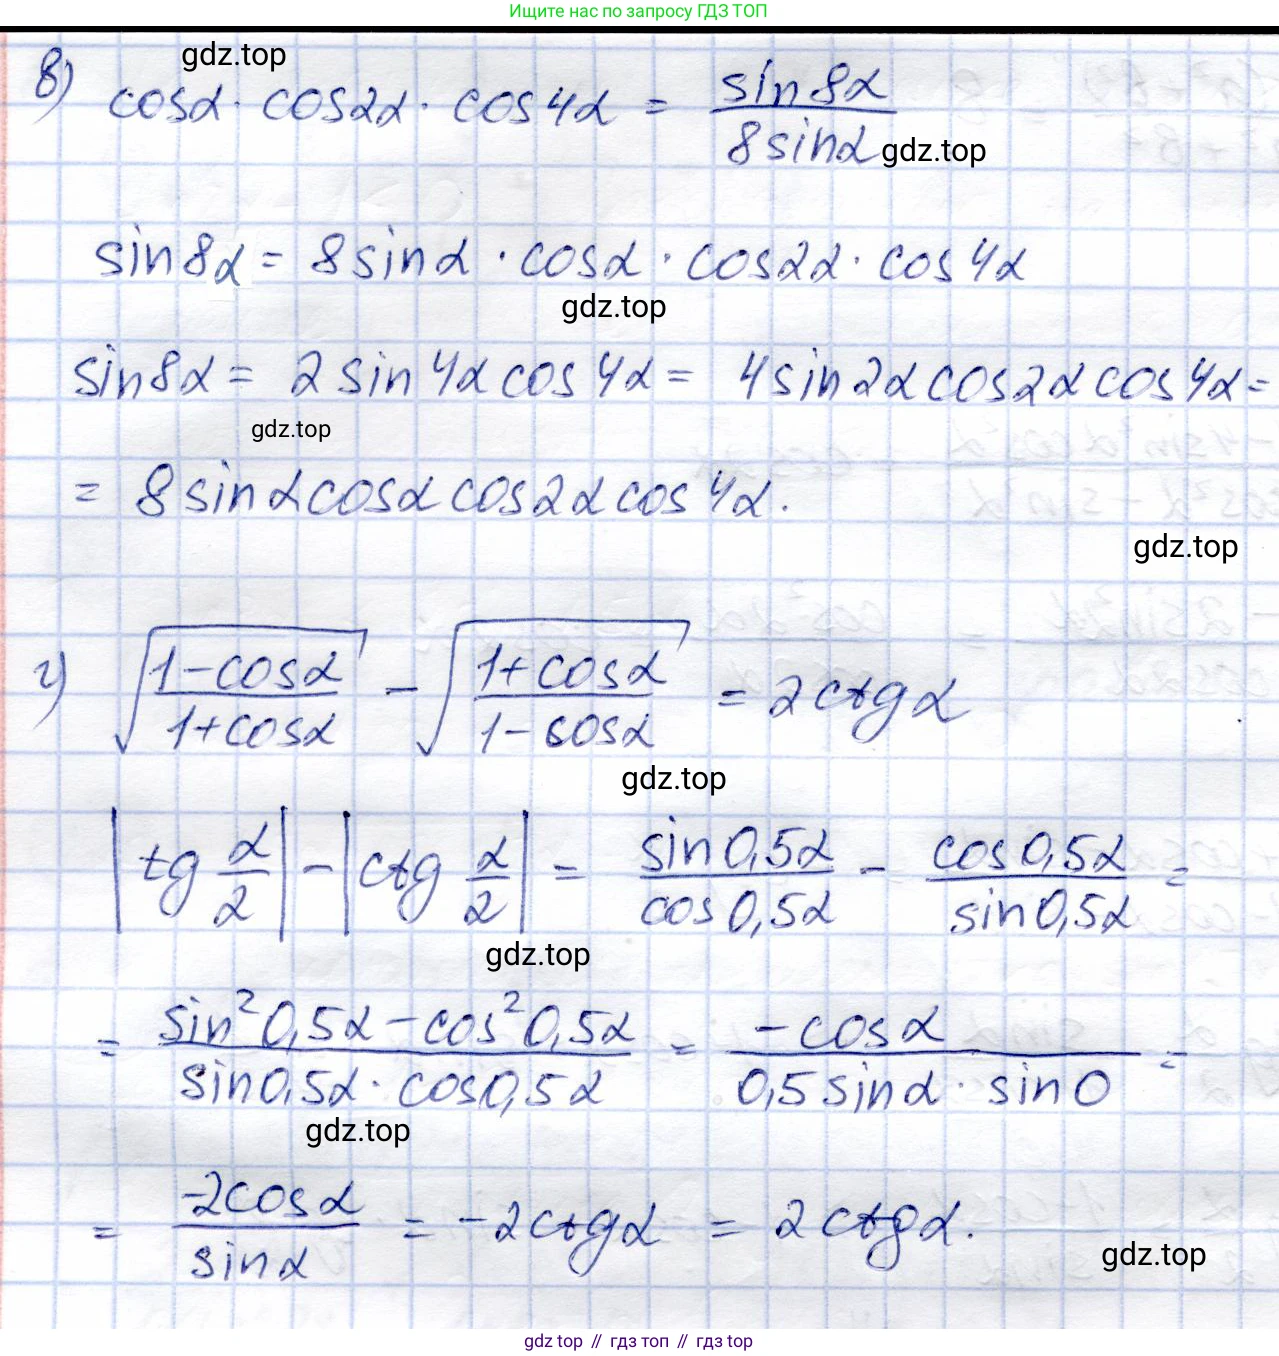 Ищите нас по запросу ГДЗ ТОП
gdz.top
в) cosα · cos2α · cos4α = sin8α / 8sinα
gdz.top
sin8α = 8sinα · cosα · cos2α · cos4α
gdz.top
sin8α = 2sin4αcos4α = 4sin2αcos2αcos4α =
gdz.top
= 8sinαcosαcos2αcos4α.
gdz.top
г) √((1-cosα)/(1+cosα)) - √((1+cosα)/(1-cosα)) = 2ctgα
gdz.top
|tg α/2| - |ctg α/2| = sin0,5α/cos0,5α - cos0,5α/sin0,5α =
gdz.top
= (sin²0,5α - cos²0,5α)/(sin0,5α · cos0,5α) = -cosα/(0,5sinα · sin0) =
gdz.top
= -2cosα/sinα = -2ctgα = 2ctgα.
gdz.top
gdz top // гдз топ // гдз top